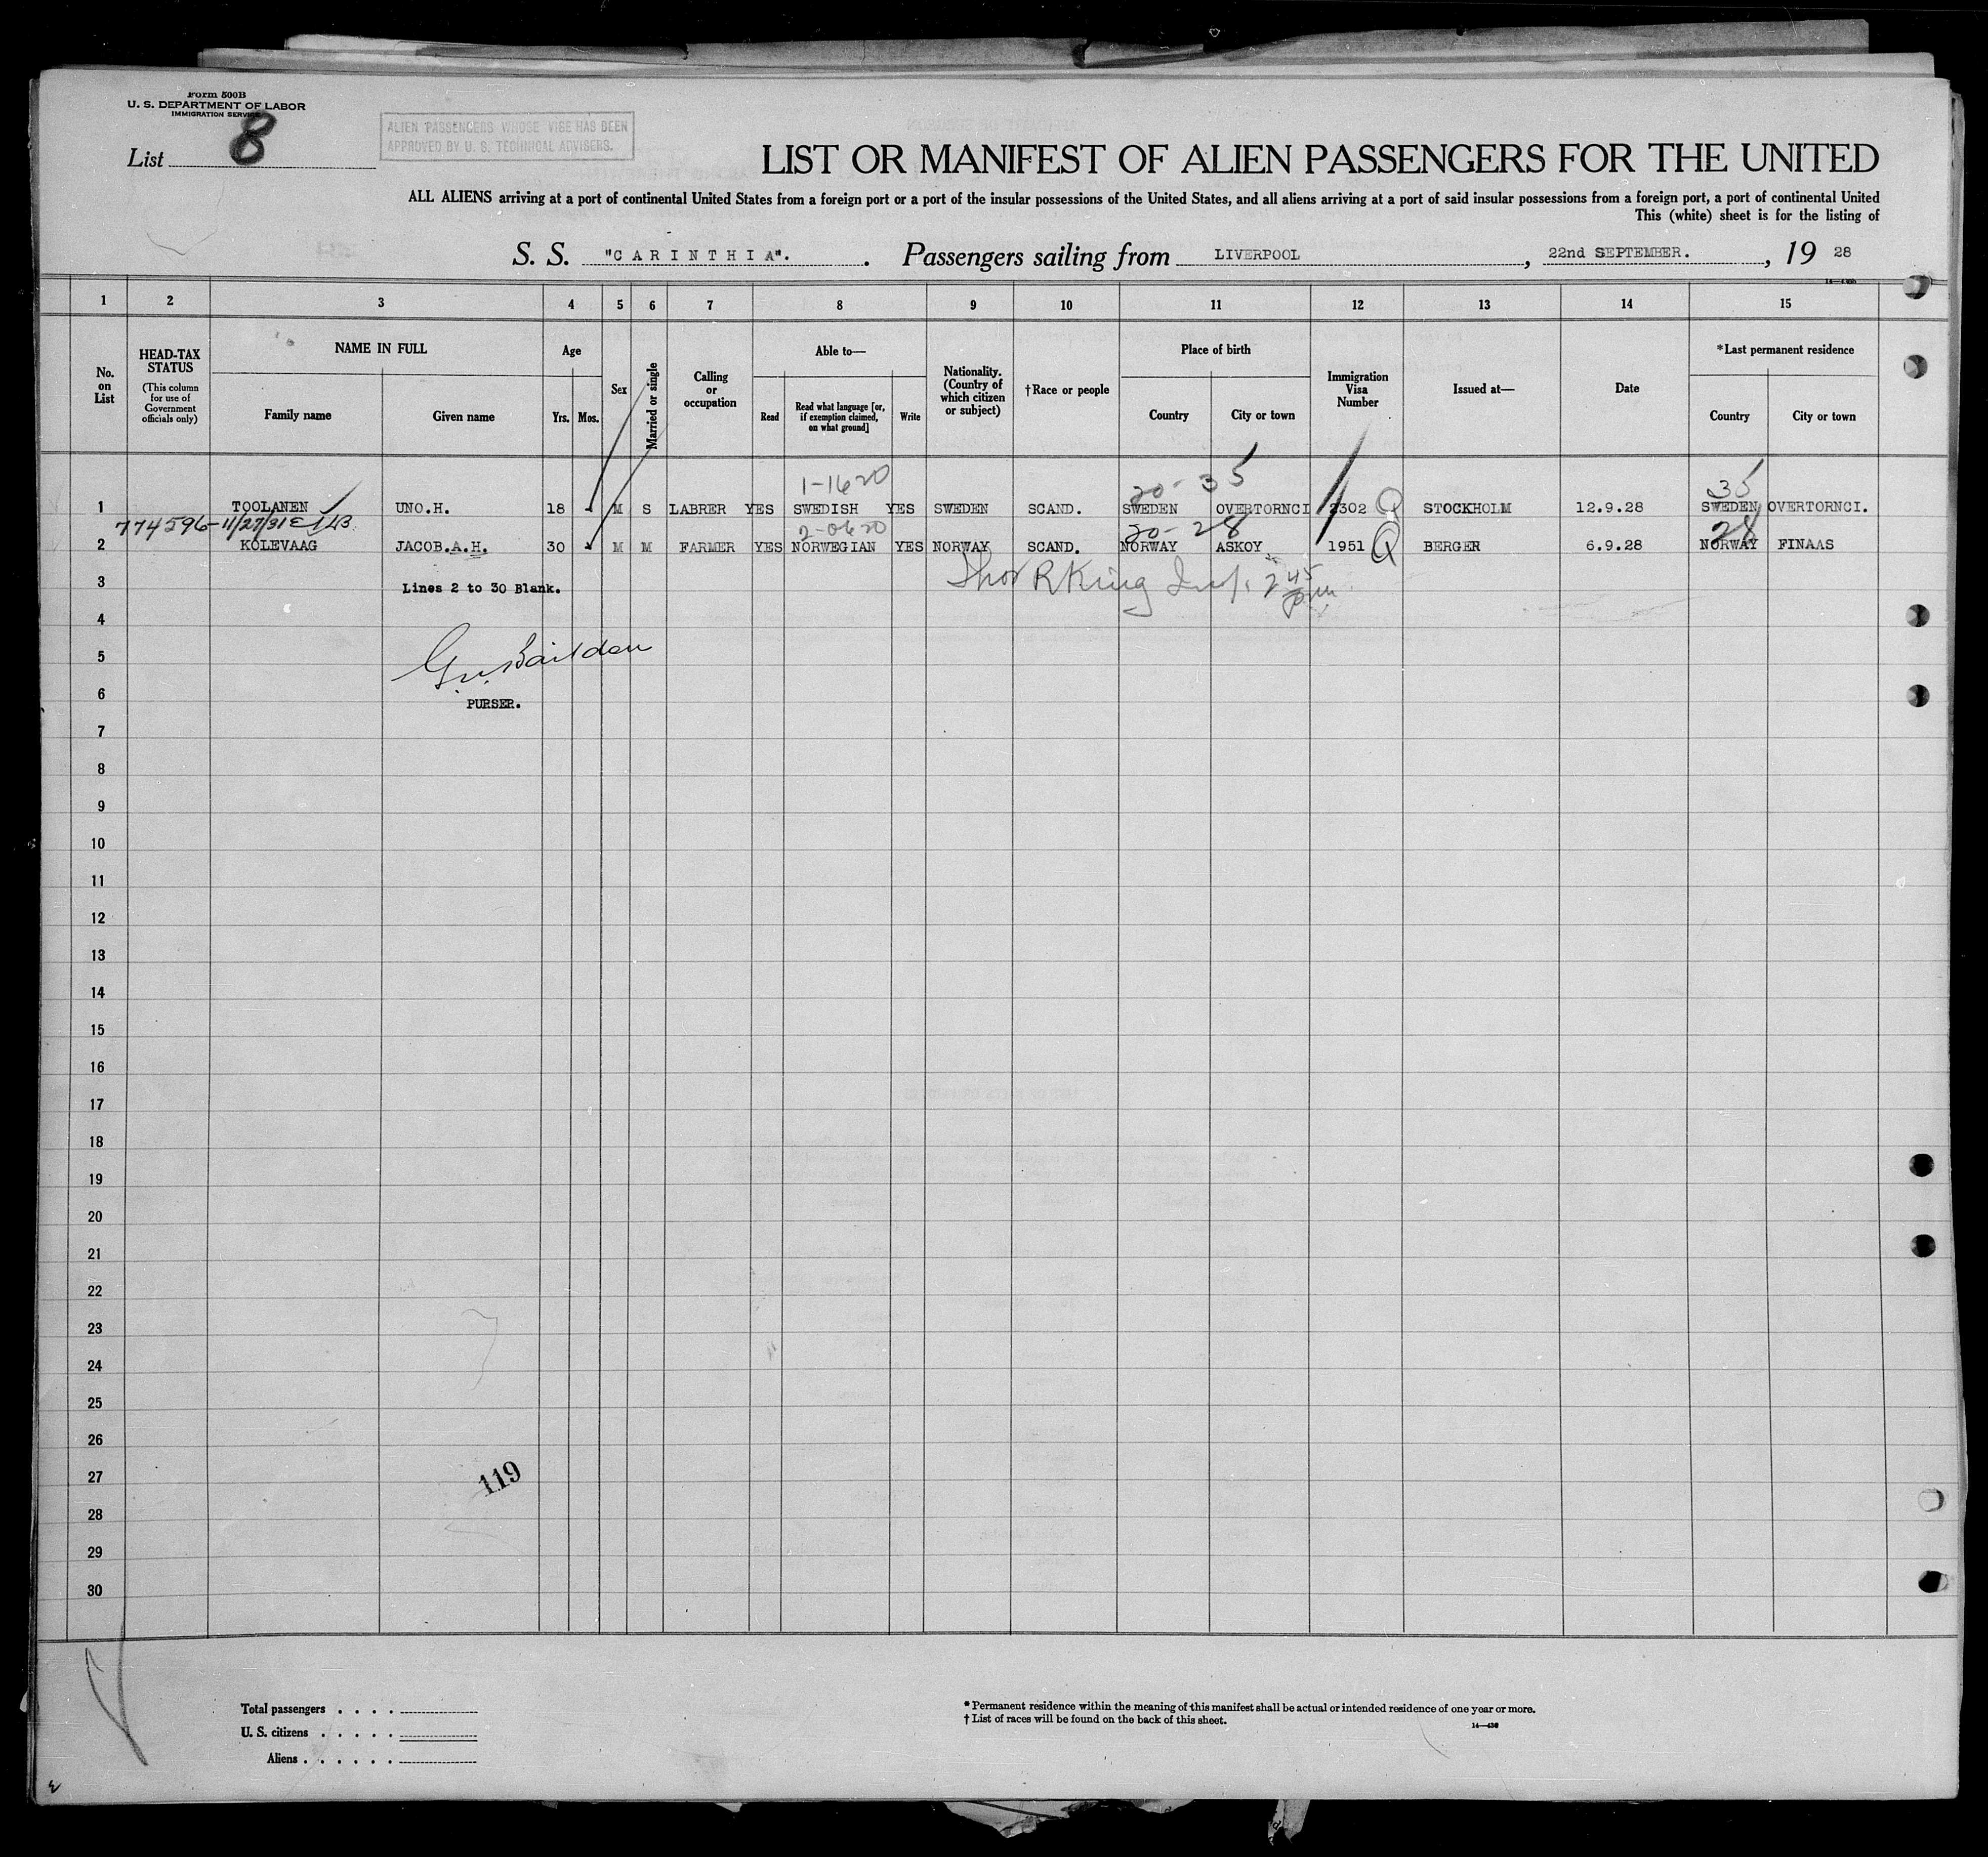 Form 500B
U. S. DEPARTMENT OF LABOR
IMMIGRATION SERVICE
List 8
ALIEN PASSENGERS WHOSE VISE HAS BEEN
APPROVED BY U. S. TECHNICAL ADVISERS.
LIST OR MANIFEST OF ALIEN PASSENGERS FOR THE UNITED
ALL ALIENS arriving at a port of continental United States from a foreign port or a port of the insular possessions of the United States, and all aliens arriving at a port of said insular possessions from a foreign port, a port of continental United
This (white) sheet is for the listing of
S. S. "CARINTHIA". Passengers sailing from LIVERPOOL, 22nd SEPTEMBER., 19 28
1 2 3 4 5 6 7 8 9 10 11 12 13 14 15
No. on List
HEAD-TAX STATUS
(This column for use of Government officials only)
NAME IN FULL
Family name
Given name
Age
Yrs. Mos.
Sex
Married or single
Calling or occupation
Able to—
Read
Read what language [or, if exemption claimed, on what ground]
Write
Nationality. (Country of which citizen or subject)
†Race or people
Place of birth
Country
City or town
Immigration Visa Number
Issued at—
Date
*Last permanent residence
Country
City or town
1-1620 20- 35 35
1 TOOLANEN UNO.H. 18 - M S LABRER YES SWEDISH YES SWEDEN SCAND. SWEDEN OVERTORNCI 2302 Q STOCKHOLM 12.9.28 SWEDEN OVERTORNCI.
774596-11/27/31 2-0620 20- 28 28
2 KOLEVAAG JACOB.A.H. 30 - M M FARMER YES NORWEGIAN YES NORWAY SCAND. NORWAY ASKOY 1951 Q BERGER 6.9.28 NORWAY FINAAS
3 Lines 2 to 30 Blank. R King 2 45 pm
4
5
6 PURSER.
7
8
9
10
11
12
13
14
15
16
17
18
19
20
21
22
23
24
25
26
27 119
28
29
30
Total passengers . . . .
U. S. citizens . . . . .
Aliens . . . . . .
* Permanent residence within the meaning of this manifest shall be actual or intended residence of one year or more.
† List of races will be found on the back of this sheet.